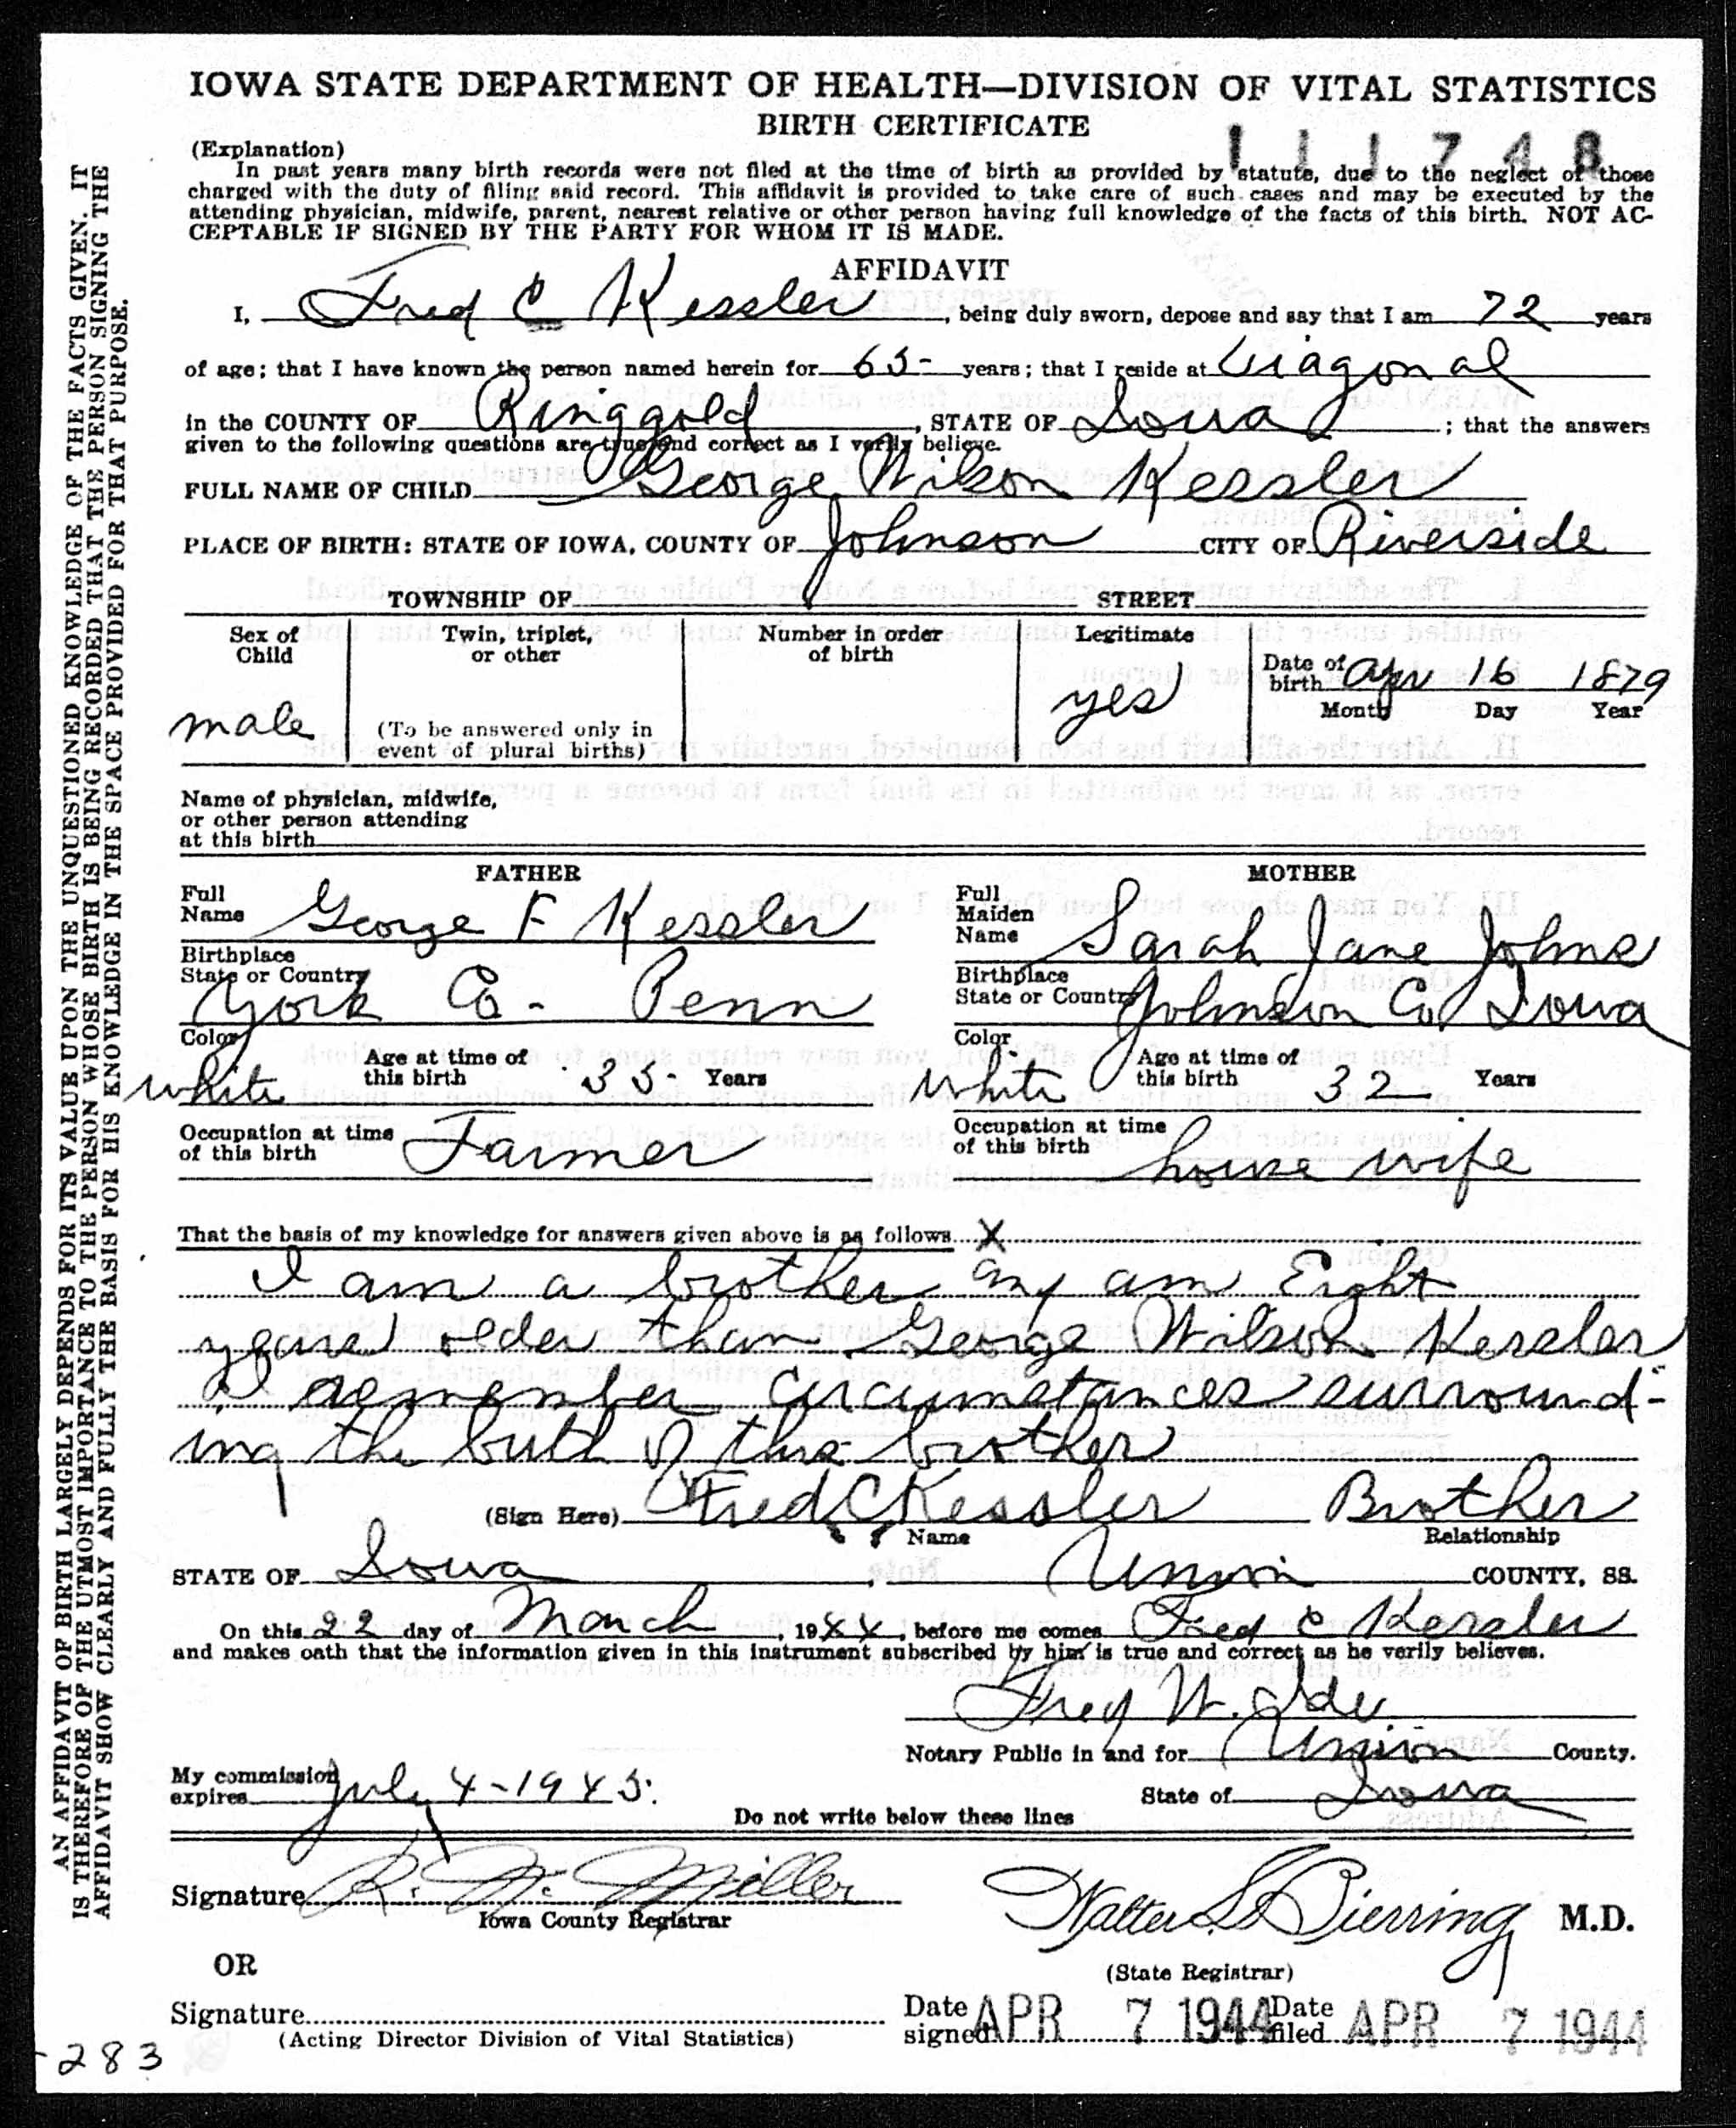 IOWA STATE DEPARTMENT OF HEALTH—DIVISION OF VITAL STATISTICS
BIRTH CERTIFICATE
111748
(Explanation)
In past years many birth records were not filed at the time of birth as provided by statute, due to the neglect of those
charged with the duty of filing said record. This affidavit is provided to take care of such cases and may be executed by the
attending physician, midwife, parent, nearest relative or other person having full knowledge of the facts of this birth. NOT AC-
CEPTABLE IF SIGNED BY THE PARTY FOR WHOM IT IS MADE.
AFFIDAVIT
I, Fred C Kessler, being duly sworn, depose and say that I am 72 years
of age; that I have known the person named herein for 65 years; that I reside at Diagonal
in the COUNTY OF Ringgold, STATE OF Iowa; that the answers
given to the following questions are true and correct as I verily believe.
FULL NAME OF CHILD George Wilson Kessler
PLACE OF BIRTH: STATE OF IOWA, COUNTY OF Johnson CITY OF Riverside
TOWNSHIP OF STREET
Sex of Child male
Twin, triplet, or other
(To be answered only in event of plural births)
Number in order of birth
Legitimate yes
Date of birth Apr 16 1879
Month Day Year
Name of physician, midwife,
or other person attending
at this birth
FATHER
Full Name George F Kessler
Birthplace State or Country York Co - Penn
Color white Age at time of this birth 35 Years
Occupation at time of this birth Farmer
MOTHER
Full Maiden Name Sarah Jane Johns
Birthplace State or Country Johnson Co Iowa
Color White Age at time of this birth 32 Years
Occupation at time of this birth house wife
That the basis of my knowledge for answers given above is as follows X
I am a brother any am Eight
years older than George Wilson Kessler
I remember circumstances surround-
ing the birth of this brother
(Sign Here) Fred C Kessler Brother
Name Relationship
STATE OF Iowa, Union COUNTY, SS.
On this 22 day of March, 1944, before me comes Fred C Kessler
and makes oath that the information given in this instrument subscribed by him is true and correct as he verily believes.
Fred W. Ide
Notary Public in and for Union County.
My commission expires July 4-1945. State of Iowa
Do not write below these lines
Signature R. W. Miller
Iowa County Registrar
Walter L Bierring M.D.
(State Registrar)
OR
Signature
(Acting Director Division of Vital Statistics)
Date signed APR 7 1944 Date filed APR 7 1944
-283
AN AFFIDAVIT OF BIRTH LARGELY DEPENDS FOR ITS VALUE UPON THE UNQUESTIONED KNOWLEDGE OF THE FACTS GIVEN. IT
IS THEREFORE OF THE UTMOST IMPORTANCE TO THE PERSON WHOSE BIRTH IS BEING RECORDED THAT THE PERSON SIGNING THE
AFFIDAVIT SHOW CLEARLY AND FULLY THE BASIS FOR HIS KNOWLEDGE IN THE SPACE PROVIDED FOR THAT PURPOSE.